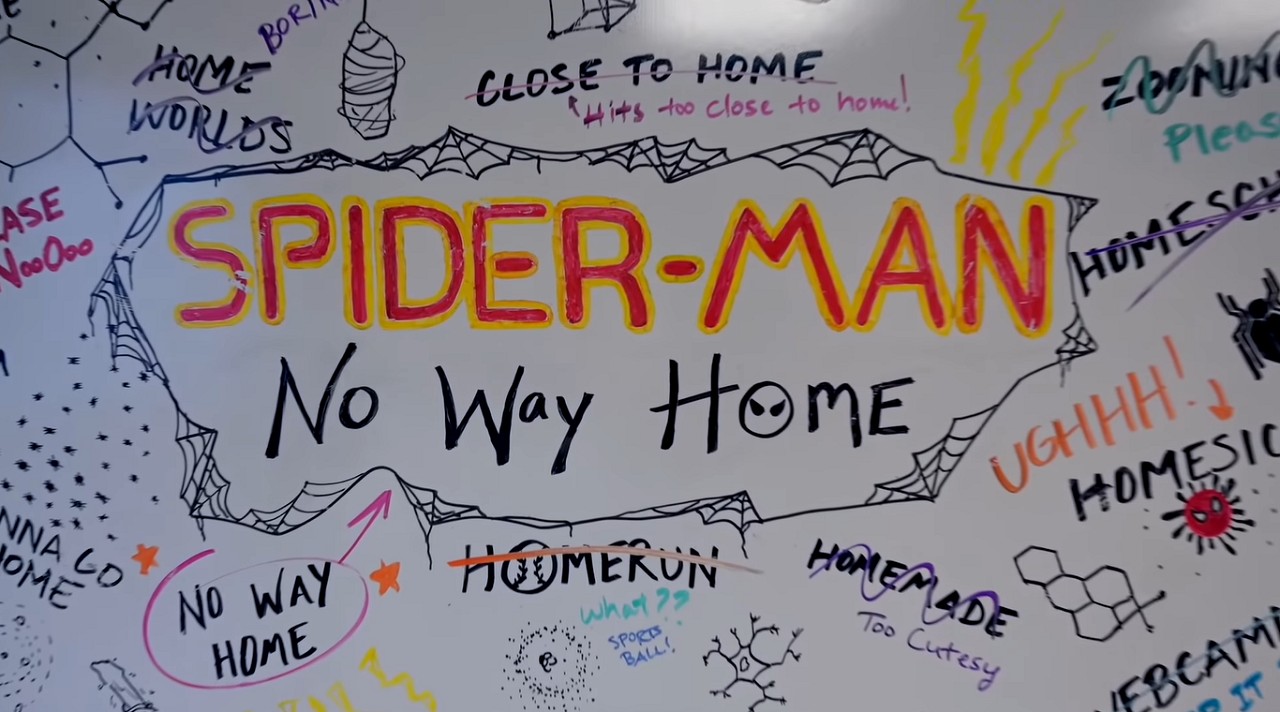 BORIN
HOME
WORLDS
CLOSE TO HOME
Hits too close to home!
ZOOMING
Pleas
EASE
NooOoo
SPIDER-MAN
HOMESCH
No Way Home
UGHHH!
HOMESIC
NNA GO
HOME
NO WAY
HOME
HOMERUN
What??
SPORTS
BALL!
HOMEMADE
Too Cutesy
WEBCAM
IT